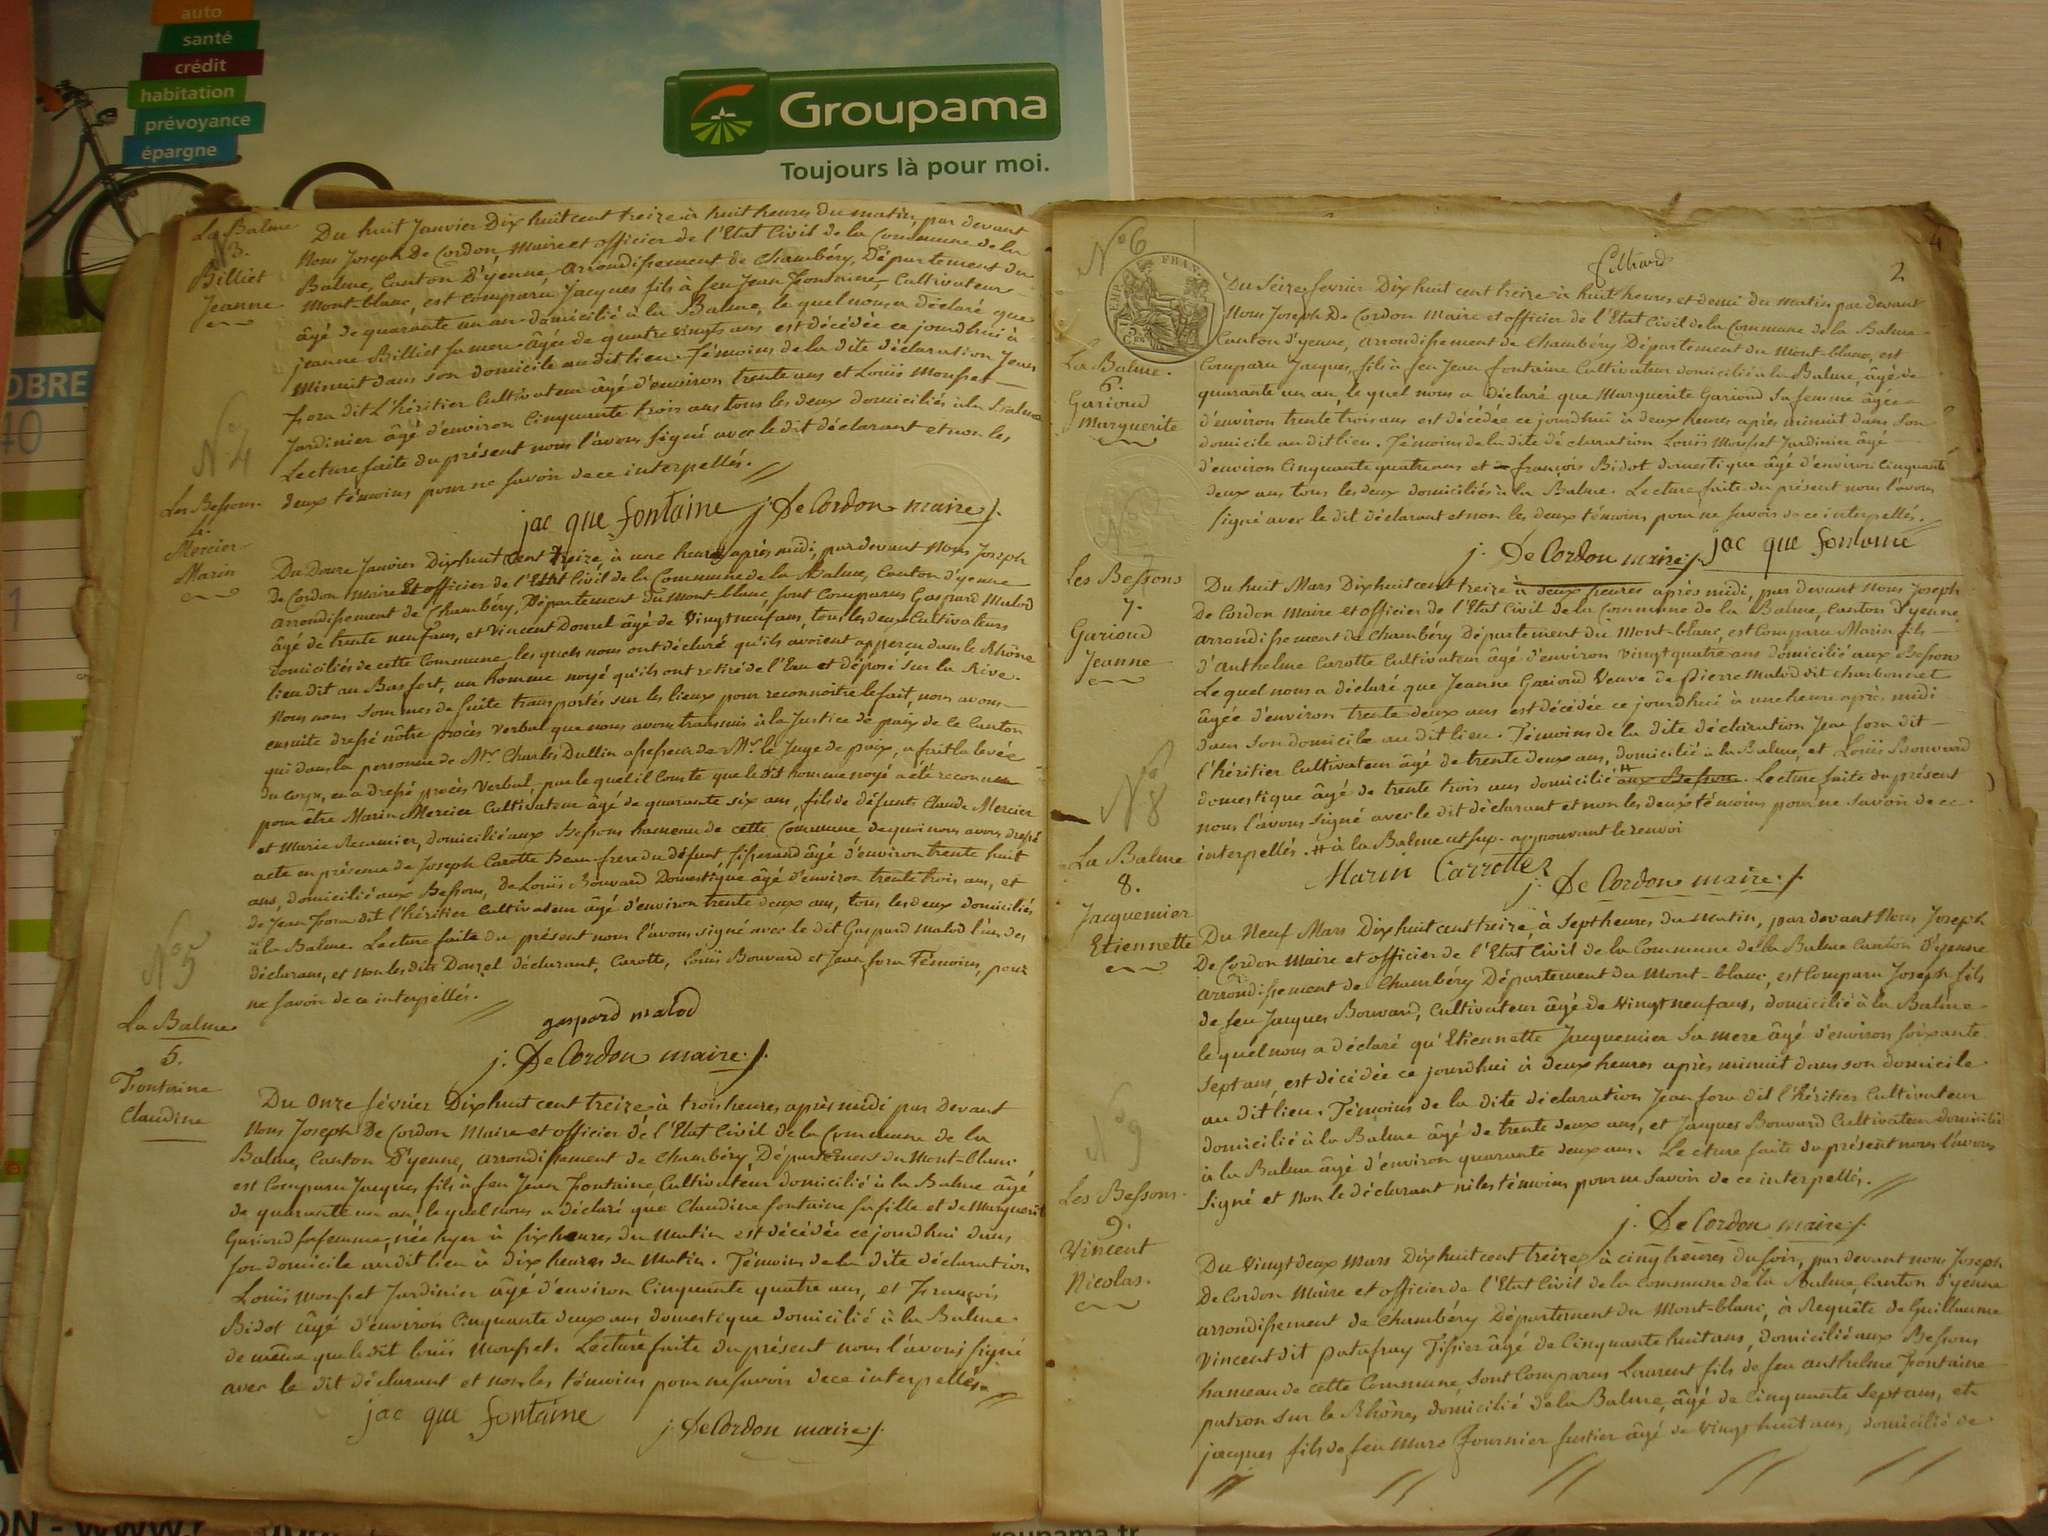 auto
santé
crédit
habitation
prévoyance
épargne
Groupama
Toujours là pour moi.
OBRE
40
La Balme
3.
Billiet
Jeanne
Du huit Janvier Dix huit cent treize à huit heures du matin, par devant
Nous Joseph De Cordon, Maire et officier de l'Etat Civil de la Commune de la
Balme, Canton D'yenne arrondissement de Chambéry, Département du
Mont-blanc, est Comparu Jacques fils à feu Jean Fontaine, Cultivateur
âgé de quarante un an domicilié à la Balme, le quel nous a déclaré que
jeanne Billiet sa mere âgée de quatre vingts ans est décédée ce jourdhui à
Minuit dans son domicile au dit lieu. Témoins de la dite déclaration Jean
fora dit L'héritier Cultivateur âgé d'environ trente ans et Louis Monfret
Jardinier âgé d'environ Cinquante trois ans tous les deux domiciliés à la Balme
Lecture faite du présent nous l'avons signé avec le dit déclarant et non les
deux témoins pour ne savoir de ce interpellés.
jac que fontaine j. De Cordon maire
N° 4
Les Bessons.
4.
Mercier
Marin
Du Douze Janvier Dix huit cent treize, à une heure après midi, par devant Nous Joseph
De Cordon maire et officier de l'Etat Civil de la Commune de la Balme, Canton d'yenne
arrondissement de Chambéry, Département du Mont-blanc, sont Comparus Gaspard Malod
âgé de trente neuf ans, et Vincent Douzel âgé de Vingt neuf ans, tous les deux Cultivateurs
domiciliés de cette Commune, les quels nous ont déclaré qu'ils avoient apperçu dans le Rhône
lieu dit au Bas fort, un homme noyé qu'ils ont retiré de l'Eau et déposé sur la Rive.
Nous nous sommes de suite transportés sur les lieux pour reconnoitre le fait, nous avons
ensuite dressé nôtre procès verbal que nous avons transmis à la Justice de paix de ce Canton
qui dans la personne de Mr. Charles Dullin assesseur de Mr. le Juge de paix, a fait la levée
du corps, en a dressé procès Verbal, par le quel il Conste que le dit homme noyé a été reconnu
pour être Marin Mercier Cultivateur âgé de quarante six ans, fils de défunts Claude Mercier
et Marie Recumier, domicilié aux Bessons hameau de cette Commune de quoi nous avons dressé
acte en présence de Joseph Carotte beau-frere du défunt, âgé d'environ trente huit
ans, domicilié aux Bessons, de Louis Bouvard Domestique âgé d'environ trente trois ans, et
de Jean fora dit l'héritier Cultivateur âgé d'environ trente deux ans, tous les deux domiciliés
à la Balme. Lecture faite du présent nous l'avons signé avec le dit Gaspard malod l'un des
déclarans, et non les dits Douzel déclarant, Carotte, Louis Bouvard et Jean fora Témoins, pour
ne savoir de ce interpellés.
gaspard malod
j. De Cordon maire
N° 5
La Balme
5.
Fontaine
Claudine
Du Onze février Dix huit cent treize à trois heures après midi par devant
Nous Joseph De Cordon Maire et officier de l'Etat Civil de la Commune de la
Balme, Canton D'yenne, arrondissement de Chambéry, Département du Mont-blanc
est Comparu Jacques fils à feu Jean Fontaine, Cultivateur domicilié à la Balme âgé
de quarante un an, le quel nous a déclaré que Claudine fontaine sa fille et de Marguerite
Gariond sa femme, née hyer à six heures du Matin est décédée ce jourdhui dans
son domicile au dit lieu à dix heures du Matin. Témoins de la dite déclaration
Louis Monfret Jardinier âgé d'environ Cinquante quatre ans, et François
Bidot âgé d'environ Cinquante deux ans domestique domicilié à la Balme
de même que le dit Louis Monfret. Lecture faite du présent nous l'avons signé
avec le dit déclarant et non les témoins pour ne savoir de ce interpellés.
jac que fontaine
j. De Cordon maire
4
2
N° 6
EMP. FRAN.
La Balme.
6.
Gariond
Marguerite
Du Seize février Dix huit cent treize à huit heures et demi du matin, par devant
Nous Joseph De Cordon Maire et officier de l'Etat Civil de la Commune de la Balme
Canton d'yenne, arrondissement de Chambéry Département du Mont-blanc, est
Comparu Jacques fils à feu Jean fontaine Cultivateur domicilié à la Balme, âgé de
quarante un an, le quel nous a déclaré que Marguerite Gariond sa femme âgée
d'environ trente trois ans est décédée ce jourdhui à deux heures après minuit dans son
domicile au dit lieu. Témoins de la dite déclaration Louis Monfret Jardinier âgé
d'environ Cinquante quatre ans et françois Bidot domestique âgé d'environ Cinquante
deux ans tous les deux domiciliés à la Balme. Lecture faite du présent nous l'avons
signé avec le dit déclarant et non les deux témoins pour ne savoir de ce interpellés.
j. De Cordon maire jac que fontaine
N° 7
Les Bessons
7.
Gariond
Jeanne
Du huit Mars Dix huit cent treize à deux heures après midi, par devant Nous Joseph
De Cordon Maire et officier de l'Etat Civil de la Commune de la Balme, Canton d'yenne
arrondissement de Chambéry Département du Mont-blanc, est Comparu Marin fils
d'Anthelme Carotte Cultivateur âgé d'environ vingt quatre ans domicilié aux Bessons
Le quel nous a déclaré que Jeanne Gariond Veuve de Pierre Malod dit charbonnet
âgée d'environ trente deux ans est décédée ce jourdhui à une heure après midi
dans son domicile au dit lieu. Témoins de la dite déclaration Jean fora dit
l'héritier Cultivateur âgé de trente deux ans, domicilié à la Balme, et Louis Bouvard
domestique âgé de trente trois ans domicilié # aux Bessons. Lecture faite du présent
nous l'avons signé avec le dit déclarant et non les deux témoins pour ne savoir de ce
interpellés. # à la Balme ut sup. approuvant le renvoi
Marin Carrotte
j. De Cordon maire
N° 8
La Balme
8.
Jacquemier
Etiennette
Du Neuf Mars Dix huit cent treize, à Sept heures du matin, par devant Nous Joseph
De Cordon Maire et officier de l'Etat Civil de la Commune de la Balme Canton d'yenne
arrondissement de Chambéry Département du Mont-blanc, est Comparu Joseph fils
de feu Jacques Bouvard, Cultivateur âgé de Vingt neuf ans, domicilié à la Balme
le quel nous a déclaré qu'Etiennette Jacquemier sa mere âgé d'environ soixante
sept ans, est décédée ce jourdhui à deux heures après minuit dans son domicile
au dit lieu. Témoins de la dite déclaration Jean fora dit l'héritier Cultivateur
domicilié à la Balme âgé de trente deux ans, et Jacques Bouvard Cultivateur domicilié
à la Balme âgé d'environ quarante deux ans. Lecture faite du présent nous l'avons
signé et non le déclarant ni les témoins pour ne savoir de ce interpellés.
j. De Cordon maire
N° 9
Les Bessons.
9.
Vincent
Nicolas.
Du Vingt deux Mars Dix huit cent treize, à cinq heures du soir, par devant nous Joseph
De Cordon Maire et officier de l'Etat Civil de la Commune de la Balme, Canton d'yenne
arrondissement de Chambéry Département du Mont-blanc, à Requête de Guillaume
Vincent dit patafray Tissier âgé de Cinquante huit ans, domicilié aux Bessons
hameau de cette Commune, sont Comparus Laurent fils de feu anthelme Fontaine
patron sur le Rhône, domicilié de la Balme, âgé de Cinquante Sept ans, et
jacques fils de feu Marc Fournier fustier âgé de Vingt huit ans, domicilié de